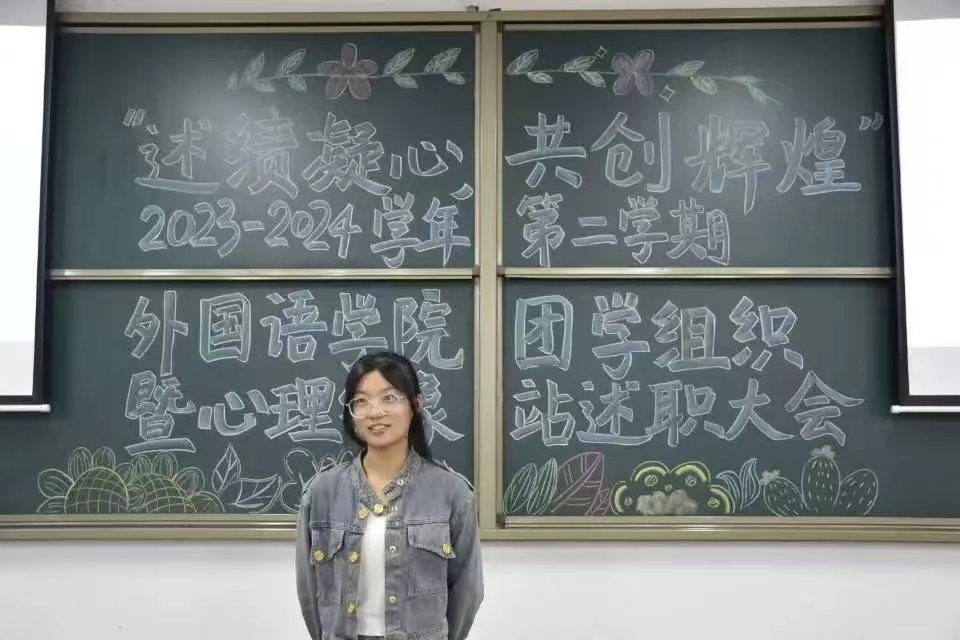 “述绩凝心, 共创辉煌”
2023-2024学年 第二学期
外国语学院 团学组织
暨心理 站述职大会